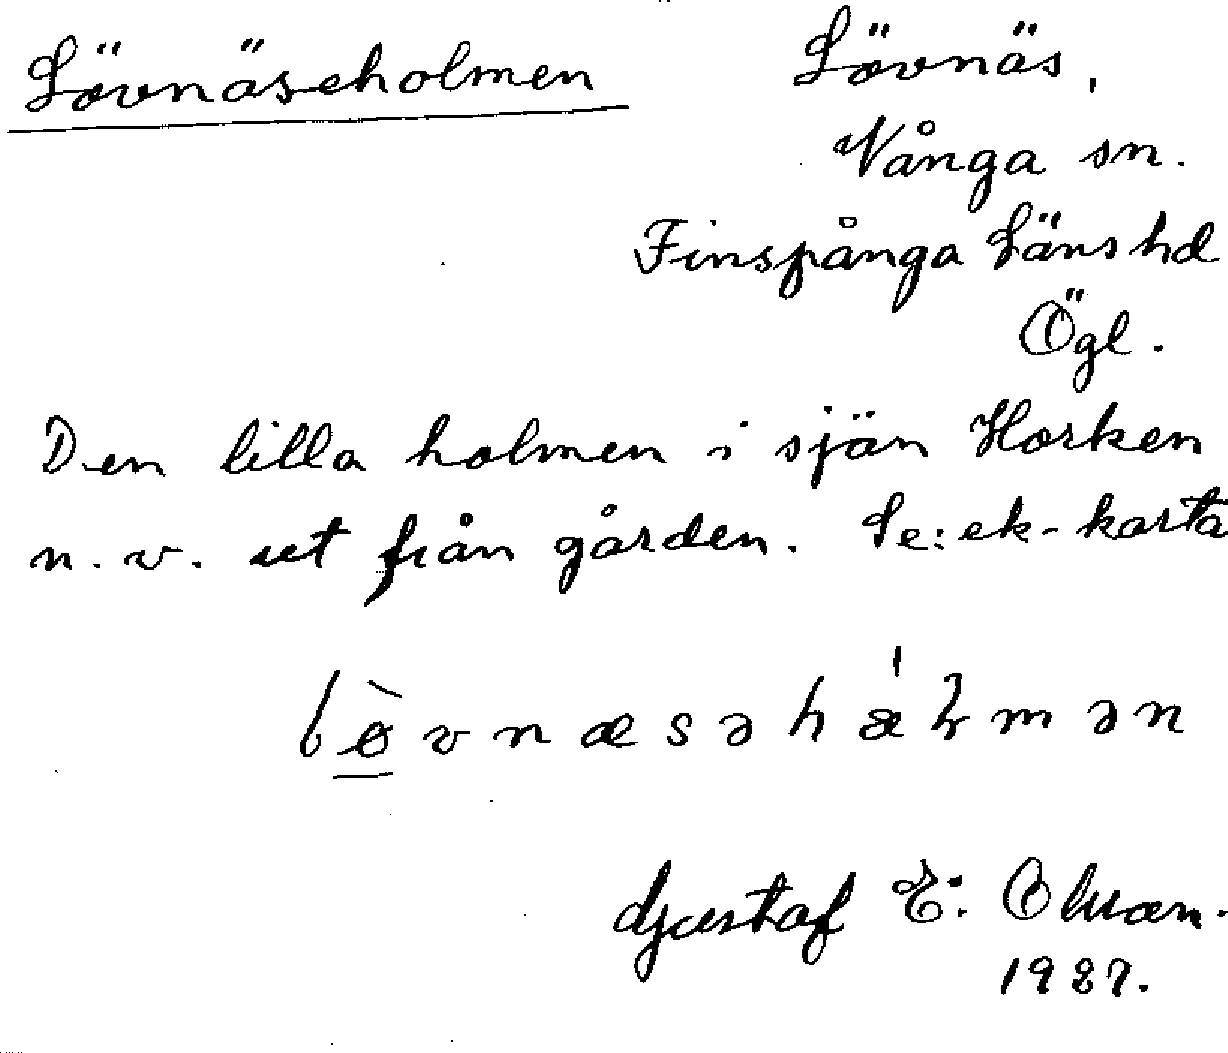 Lövnäseholmen
Lövnäs,
Vånga sn.
Finspånga Läns hd
Ögl.
Den lilla holmen i sjön Horken
n.v. ut från gården. Se: ek-karta
lòvnæsəhǽlmən
Gustaf E: Ohlson.
1927.